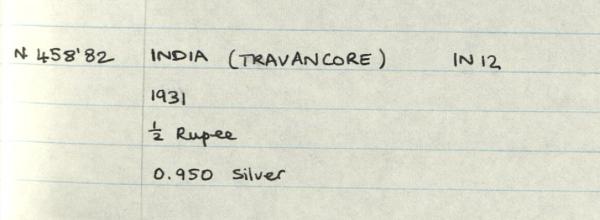 N 458'82 INDIA (TRAVANCORE) IN 12
1931
½ Rupee
0.950 Silver